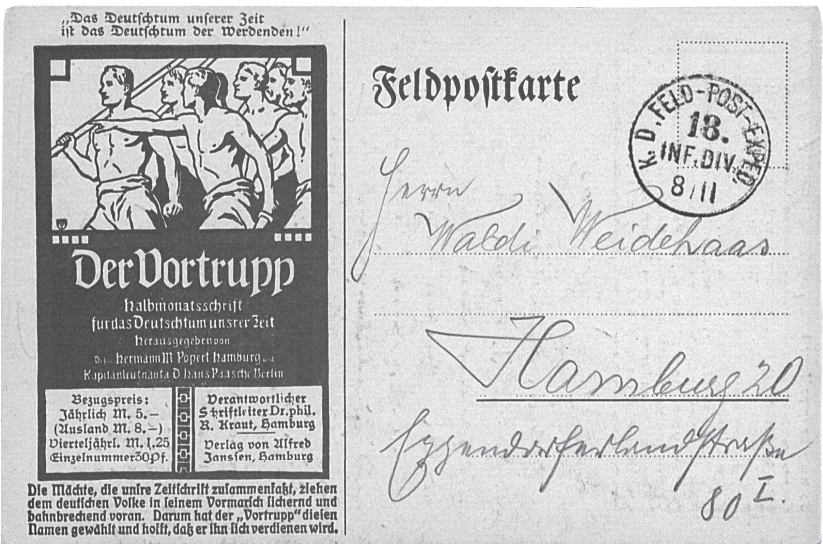 „Das Deutschtum unserer Zeit
ist das Deutschtum der Werdenden!"
Der Vortrupp
Halbmonatsschrift
für das Deutschtum unsrer Zeit
Herausgegeben von
Dr. Hermann M Popert Hamburg und
Kapitänleutnant a D Hans Paasche Berlin
Bezugspreis:
Jährlich M. 5.–
(Ausland M. 8.–)
Vierteljährl. M. 1,25
Einzelnummer 30 Pf.
Verantwortlicher
Schriftleiter Dr. phil.
R. Kraut, Hamburg
Verlag von Alfred
Janssen, Hamburg
Die Mächte, die unsre Zeitschrift zusammenfaßt, ziehen
dem deutschen Volke in seinem Vormarsch sichernd und
bahnbrechend voran. Darum hat der „Vortrupp" diesen
Namen gewählt und hofft, daß er ihn sich verdienen wird.
Feldpostkarte
K. D. FELD-POST-EXPED.
18.
INF. DIV.
8/11
Herrn
Waldi Weidehaas
Hamburg 20
Eppendorferlandstraße
80 I.